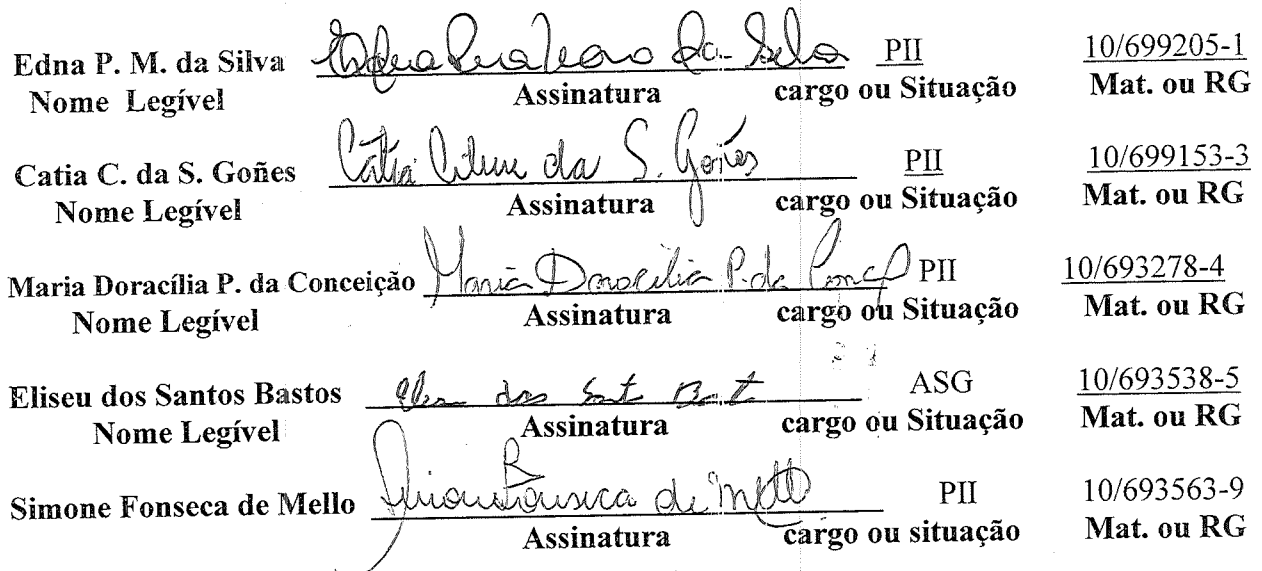 Edna P. M. da Silva Edna da Silva PII 10/699205-1
Nome Legível Assinatura cargo ou Situação Mat. ou RG
Catia C. da S. Goñes Catia da S. Goñes PII 10/699153-3
Nome Legível Assinatura cargo ou Situação Mat. ou RG
Maria Doracília P. da Conceição Maria Doracilia P. da PII 10/693278-4
Nome Legível Assinatura cargo ou Situação Mat. ou RG
Eliseu dos Santos Bastos dos ASG 10/693538-5
Nome Legível Assinatura cargo ou Situação Mat. ou RG
Simone Fonseca de Mello Fonseca de Mello PII 10/693563-9
Assinatura cargo ou situação Mat. ou RG